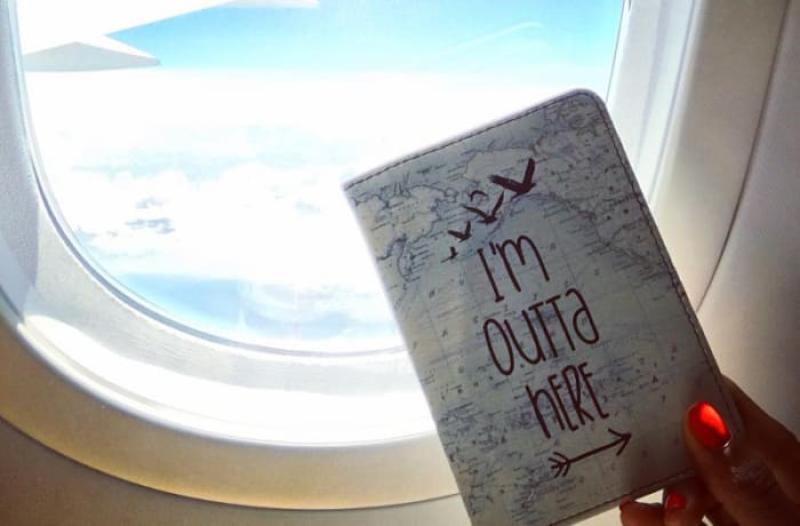 I'M
OUTTA
HERE